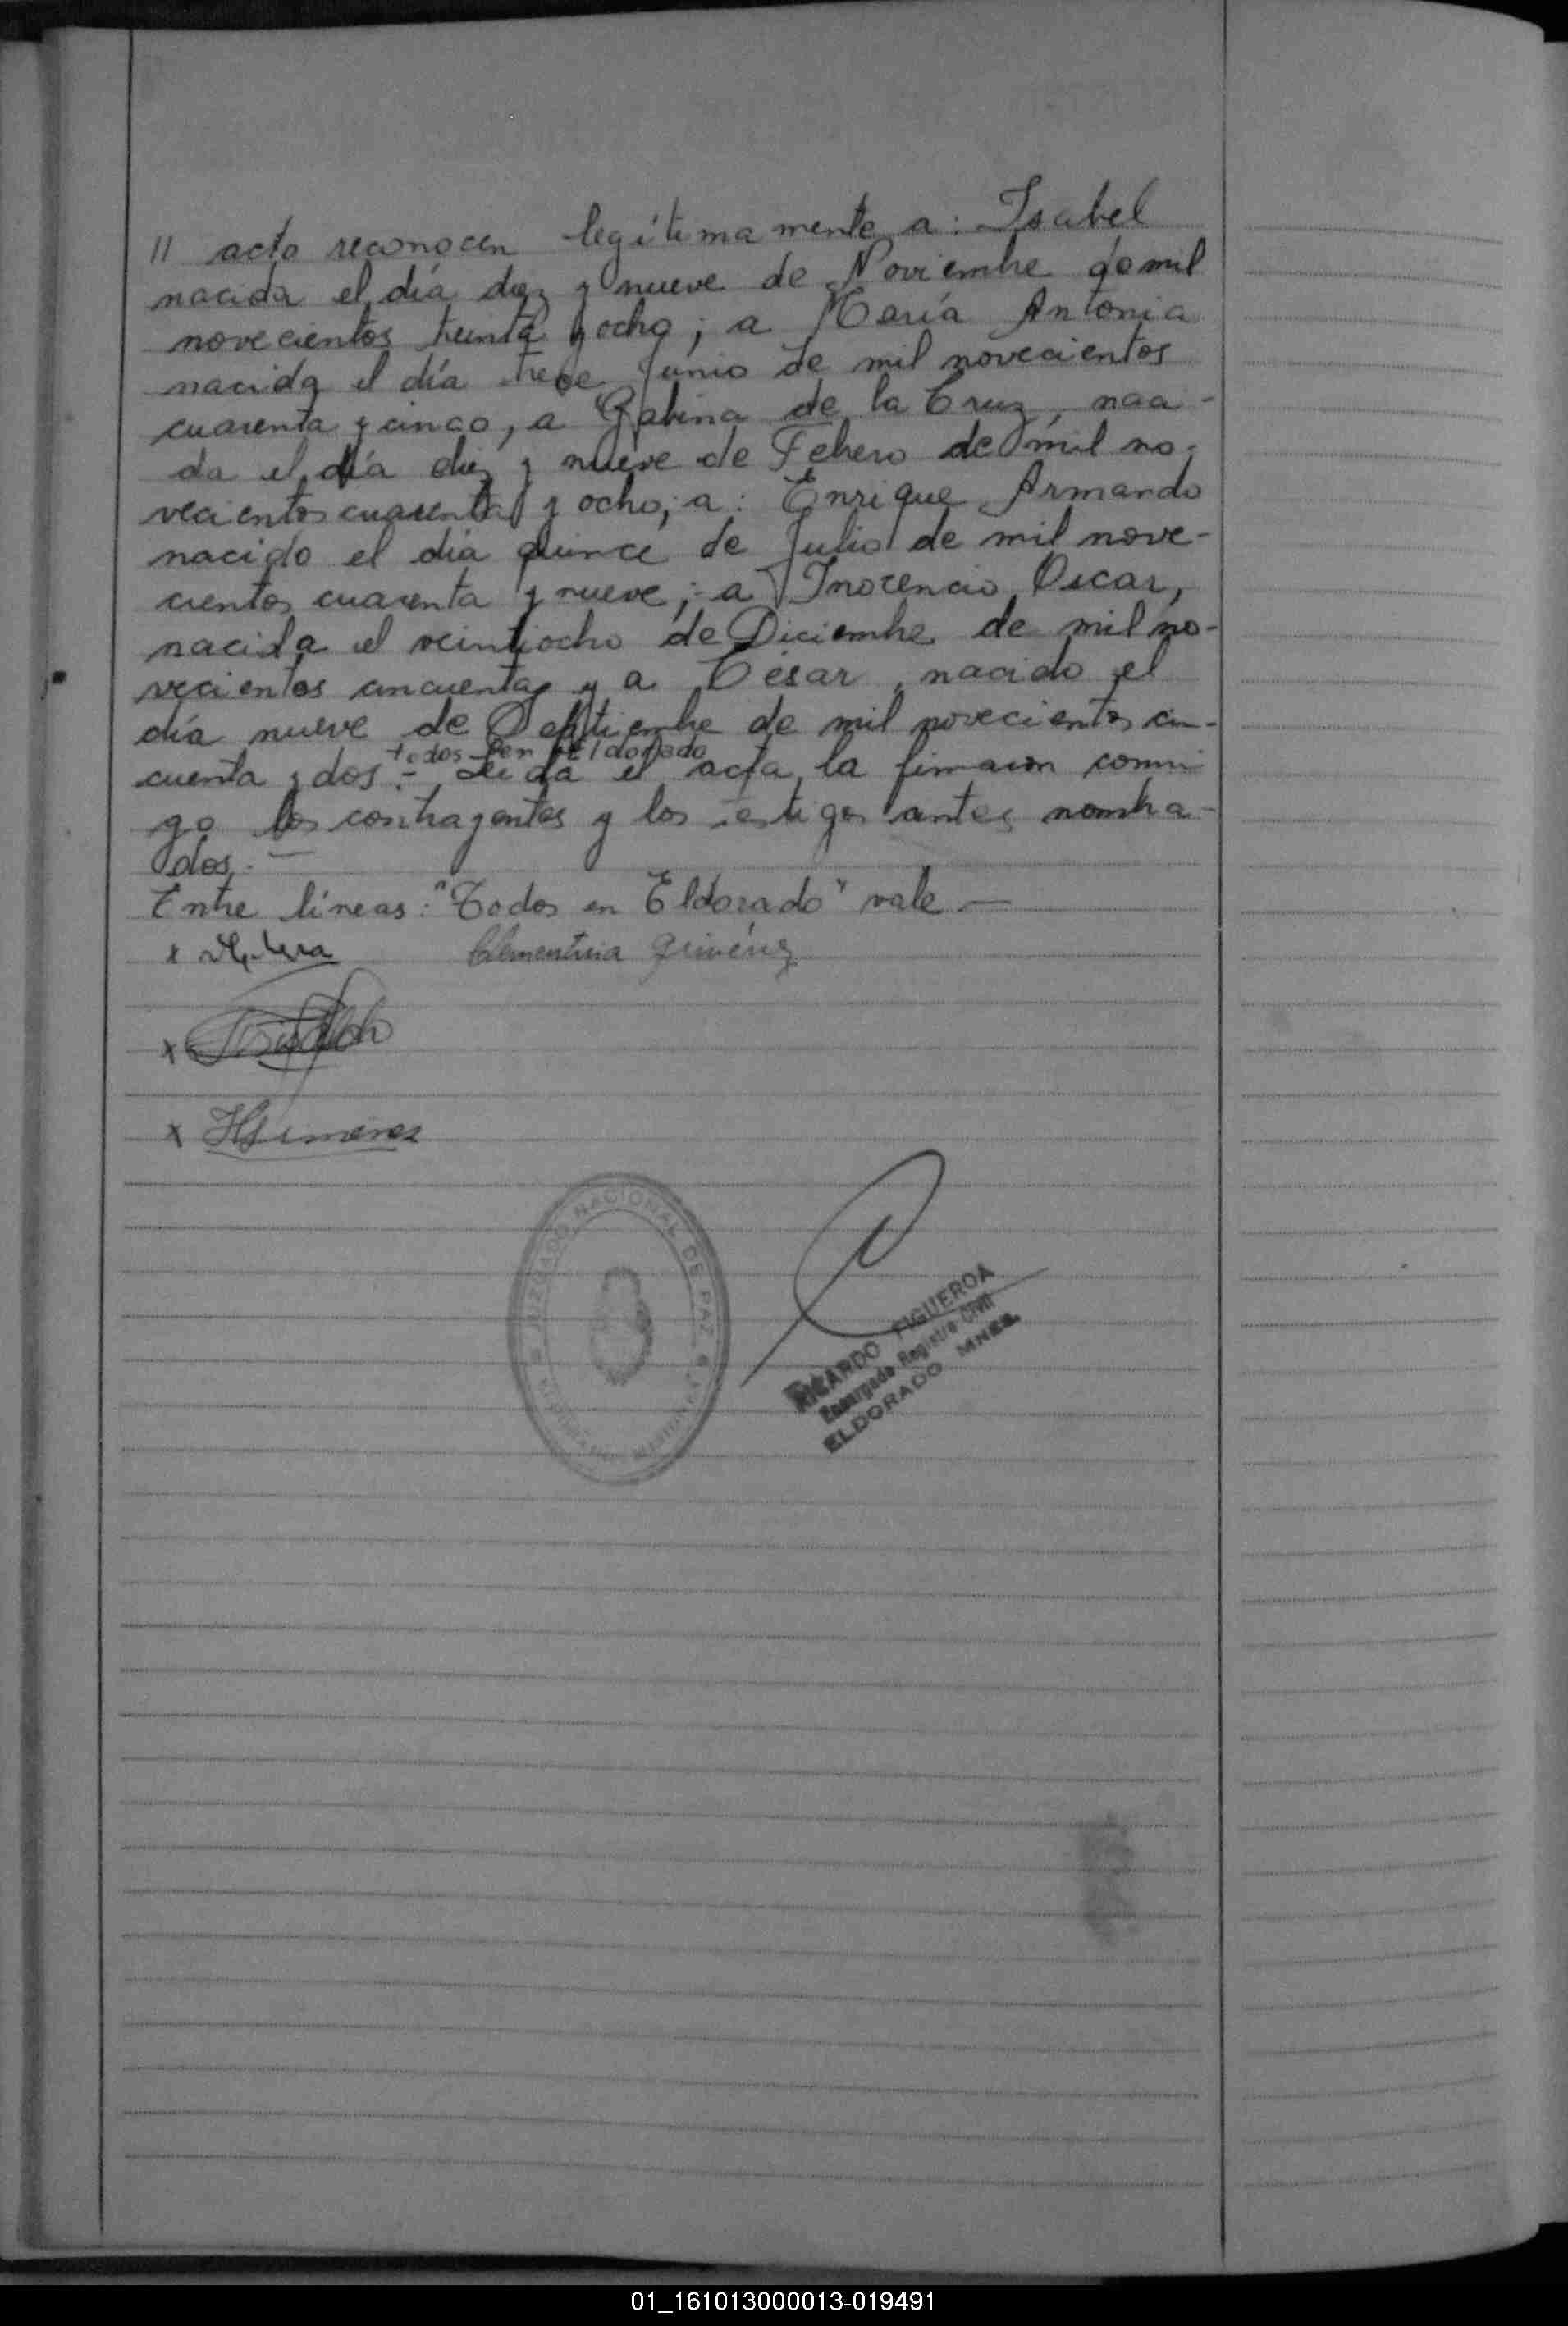 // acto reconocen legítimamente a: Isabel
nacida el día diez y nueve de Noviembre de mil
novecientos treinta y ocho; a María Antonia
nacida el día trece Junio de mil novecientos
cuarenta y cinco, a Gabina de la Cruz, naci-
da el día diez y nueve de Febrero de mil no-
vecientos cuarenta y ocho; a: Enrique Armando
nacido el día quince de Julio de mil nove-
cientos cuarenta y nueve; a Inocencio Oscar,
nacida el veintiocho de Diciembre de mil no-
vecientos cincuenta y a César, nacido el
día nueve de Septiembre de mil novecientos cin-
todos en Eldorado
cuenta y dos.- Leida el acta, la firmaron conmi
go los contrayentes y los testigos antes nombra-
dos.-
Entre líneas: "Todos en Eldorado" vale.-
x
Clementina Giménez
x
x HGimenez
JUZGADO NACIONAL DE PAZ
ELDORADO MISIONES
RICARDO FIGUEROA
Encargado Registro Civil
ELDORADO MNES.
01_161013000013-019491